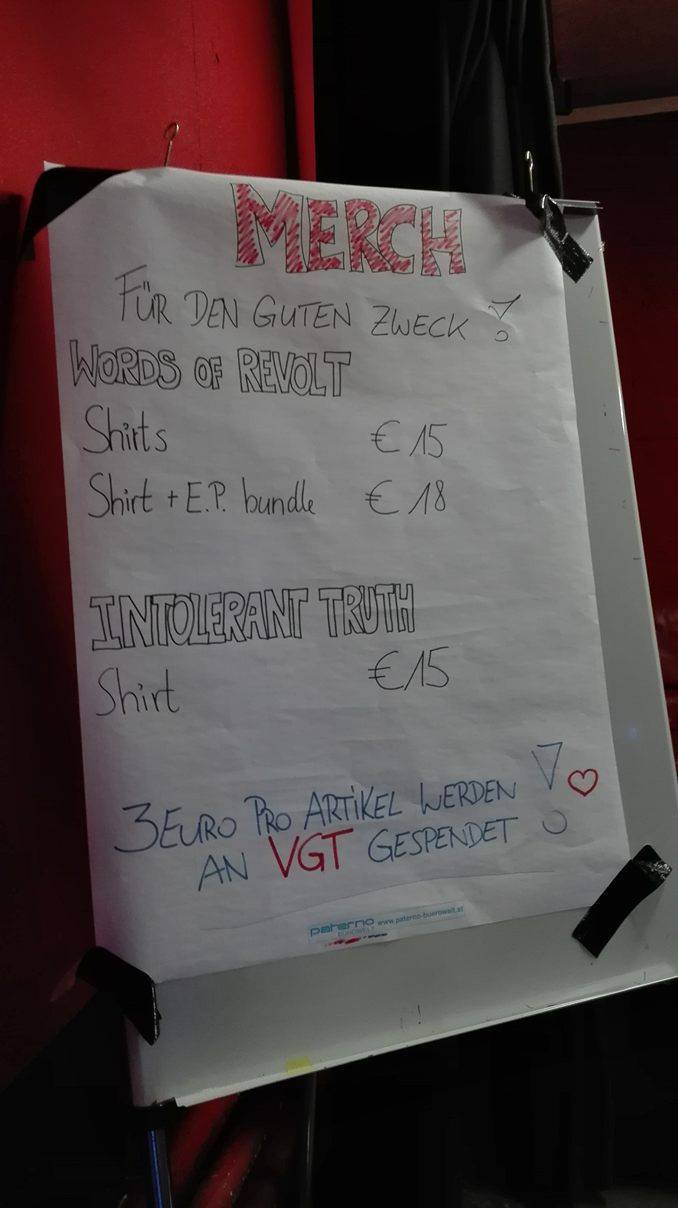 MERCH
FÜR DEN GUTEN ZWECK!
WORDS OF REVOLT
Shirts € 15
Shirt + E.P. bundle € 18
INTOLERANT TRUTH
Shirt € 15
3 EURO PRO ARTIKEL WERDEN
AN VGT GESPENDET!
paterno www.paterno-buerowelt.at
BÜROWELT